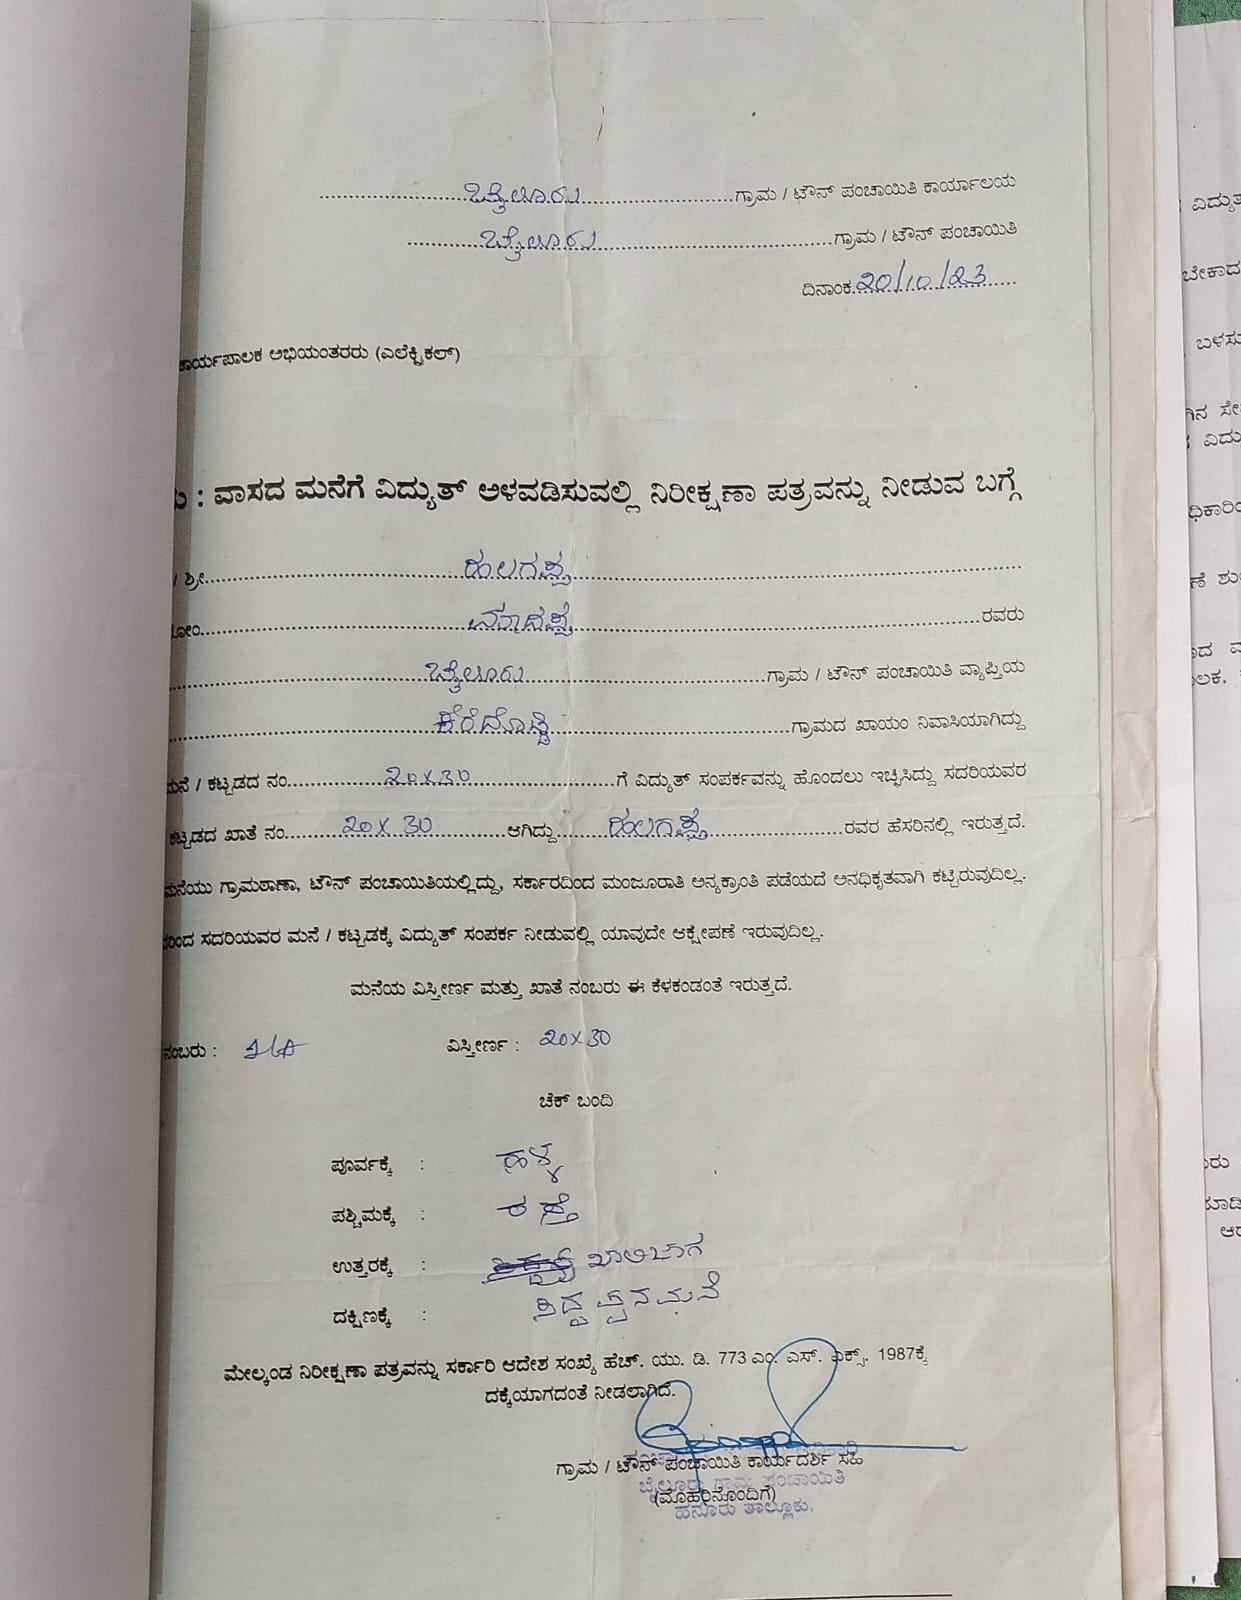 ..........ಬೈಲೂರು..........ಗ್ರಾಮ / ಟೌನ್ ಪಂಚಾಯಿತಿ ಕಾರ್ಯಾಲಯ
..........ಬೈಲೂರು..........ಗ್ರಾಮ / ಟೌನ್ ಪಂಚಾಯಿತಿ
ದಿನಾಂಕ 20/10/23
ಕಾರ್ಯಪಾಲಕ ಅಭಿಯಂತರರು (ಎಲೆಕ್ಟ್ರಿಕಲ್)
: ವಾಸದ ಮನೆಗೆ ವಿದ್ಯುತ್ ಅಳವಡಿಸುವಲ್ಲಿ ನಿರೀಕ್ಷಣಾ ಪತ್ರವನ್ನು ನೀಡುವ ಬಗ್ಗೆ
/ ಶ್ರೀ..........ಹಲಗಪ್ಪ..........
..........ಮಾದಪ್ಪ..........ರವರು
..........ಬೈಲೂರು..........ಗ್ರಾಮ / ಟೌನ್ ಪಂಚಾಯಿತಿ ವ್ಯಾಪ್ತಿಯ
..........ಕೆರೆದೊಡ್ಡಿ..........ಗ್ರಾಮದ ಖಾಯಂ ನಿವಾಸಿಯಾಗಿದ್ದು
ಮನೆ / ಕಟ್ಟಡದ ನಂ..........20x30..........ಗೆ ವಿದ್ಯುತ್ ಸಂಪರ್ಕವನ್ನು ಹೊಂದಲು ಇಚ್ಛಿಸಿದ್ದು ಸದರಿಯವರ
ಕಟ್ಟಡದ ಖಾತೆ ನಂ..........20x30..........ಆಗಿದ್ದು..........ಹಲಗಪ್ಪ..........ರವರ ಹೆಸರಿನಲ್ಲಿ ಇರುತ್ತದೆ.
ಮನೆಯು ಗ್ರಾಮಠಾಣಾ, ಟೌನ್ ಪಂಚಾಯಿತಿಯಲ್ಲಿದ್ದು, ಸರ್ಕಾರದಿಂದ ಮಂಜೂರಾತಿ ಅನ್ಯಕ್ರಾಂತಿ ಪಡೆಯದೆ ಅನಧಿಕೃತವಾಗಿ ಕಟ್ಟಿರುವುದಿಲ್ಲ.
ಸದರಿಯವರ ಮನೆ / ಕಟ್ಟಡಕ್ಕೆ ವಿದ್ಯುತ್ ಸಂಪರ್ಕ ನೀಡುವಲ್ಲಿ ಯಾವುದೇ ಆಕ್ಷೇಪಣೆ ಇರುವುದಿಲ್ಲ.
ಮನೆಯ ವಿಸ್ತೀರ್ಣ ಮತ್ತು ಖಾತೆ ನಂಬರು ಈ ಕೆಳಕಂಡಂತೆ ಇರುತ್ತದೆ.
ನಂಬರು : ವಿಸ್ತೀರ್ಣ : 20x30
ಚೆಕ್ ಬಂದಿ
ಪೂರ್ವಕ್ಕೆ : ಹಳ್ಳ
ಪಶ್ಚಿಮಕ್ಕೆ : ರಸ್ತೆ
ಉತ್ತರಕ್ಕೆ : ಖಾಲಿಜಾಗ
ದಕ್ಷಿಣಕ್ಕೆ : ಸಿದ್ದಪ್ಪನಮನೆ
ಮೇಲ್ಕಂಡ ನಿರೀಕ್ಷಣಾ ಪತ್ರವನ್ನು ಸರ್ಕಾರಿ ಆದೇಶ ಸಂಖ್ಯೆ ಹೆಚ್. ಯು. ಡಿ. 773 ಎಂ. ಎಸ್. ಎಕ್ಸ್. 1987ಕ್ಕೆ
ದಕ್ಕೆಯಾಗದಂತೆ ನೀಡಲಾಗಿದೆ.
ಗ್ರಾಮ / ಟೌನ್ ಪಂಚಾಯಿತಿ ಕಾರ್ಯದರ್ಶಿ ಸಹಿ
ಬೈಲೂರು ಗ್ರಾಮ ಪಂಚಾಯಿತಿ
(ಮೊಹರಿನೊಂದಿಗೆ)
ಹನೂರು ತಾಲ್ಲೂಕು.